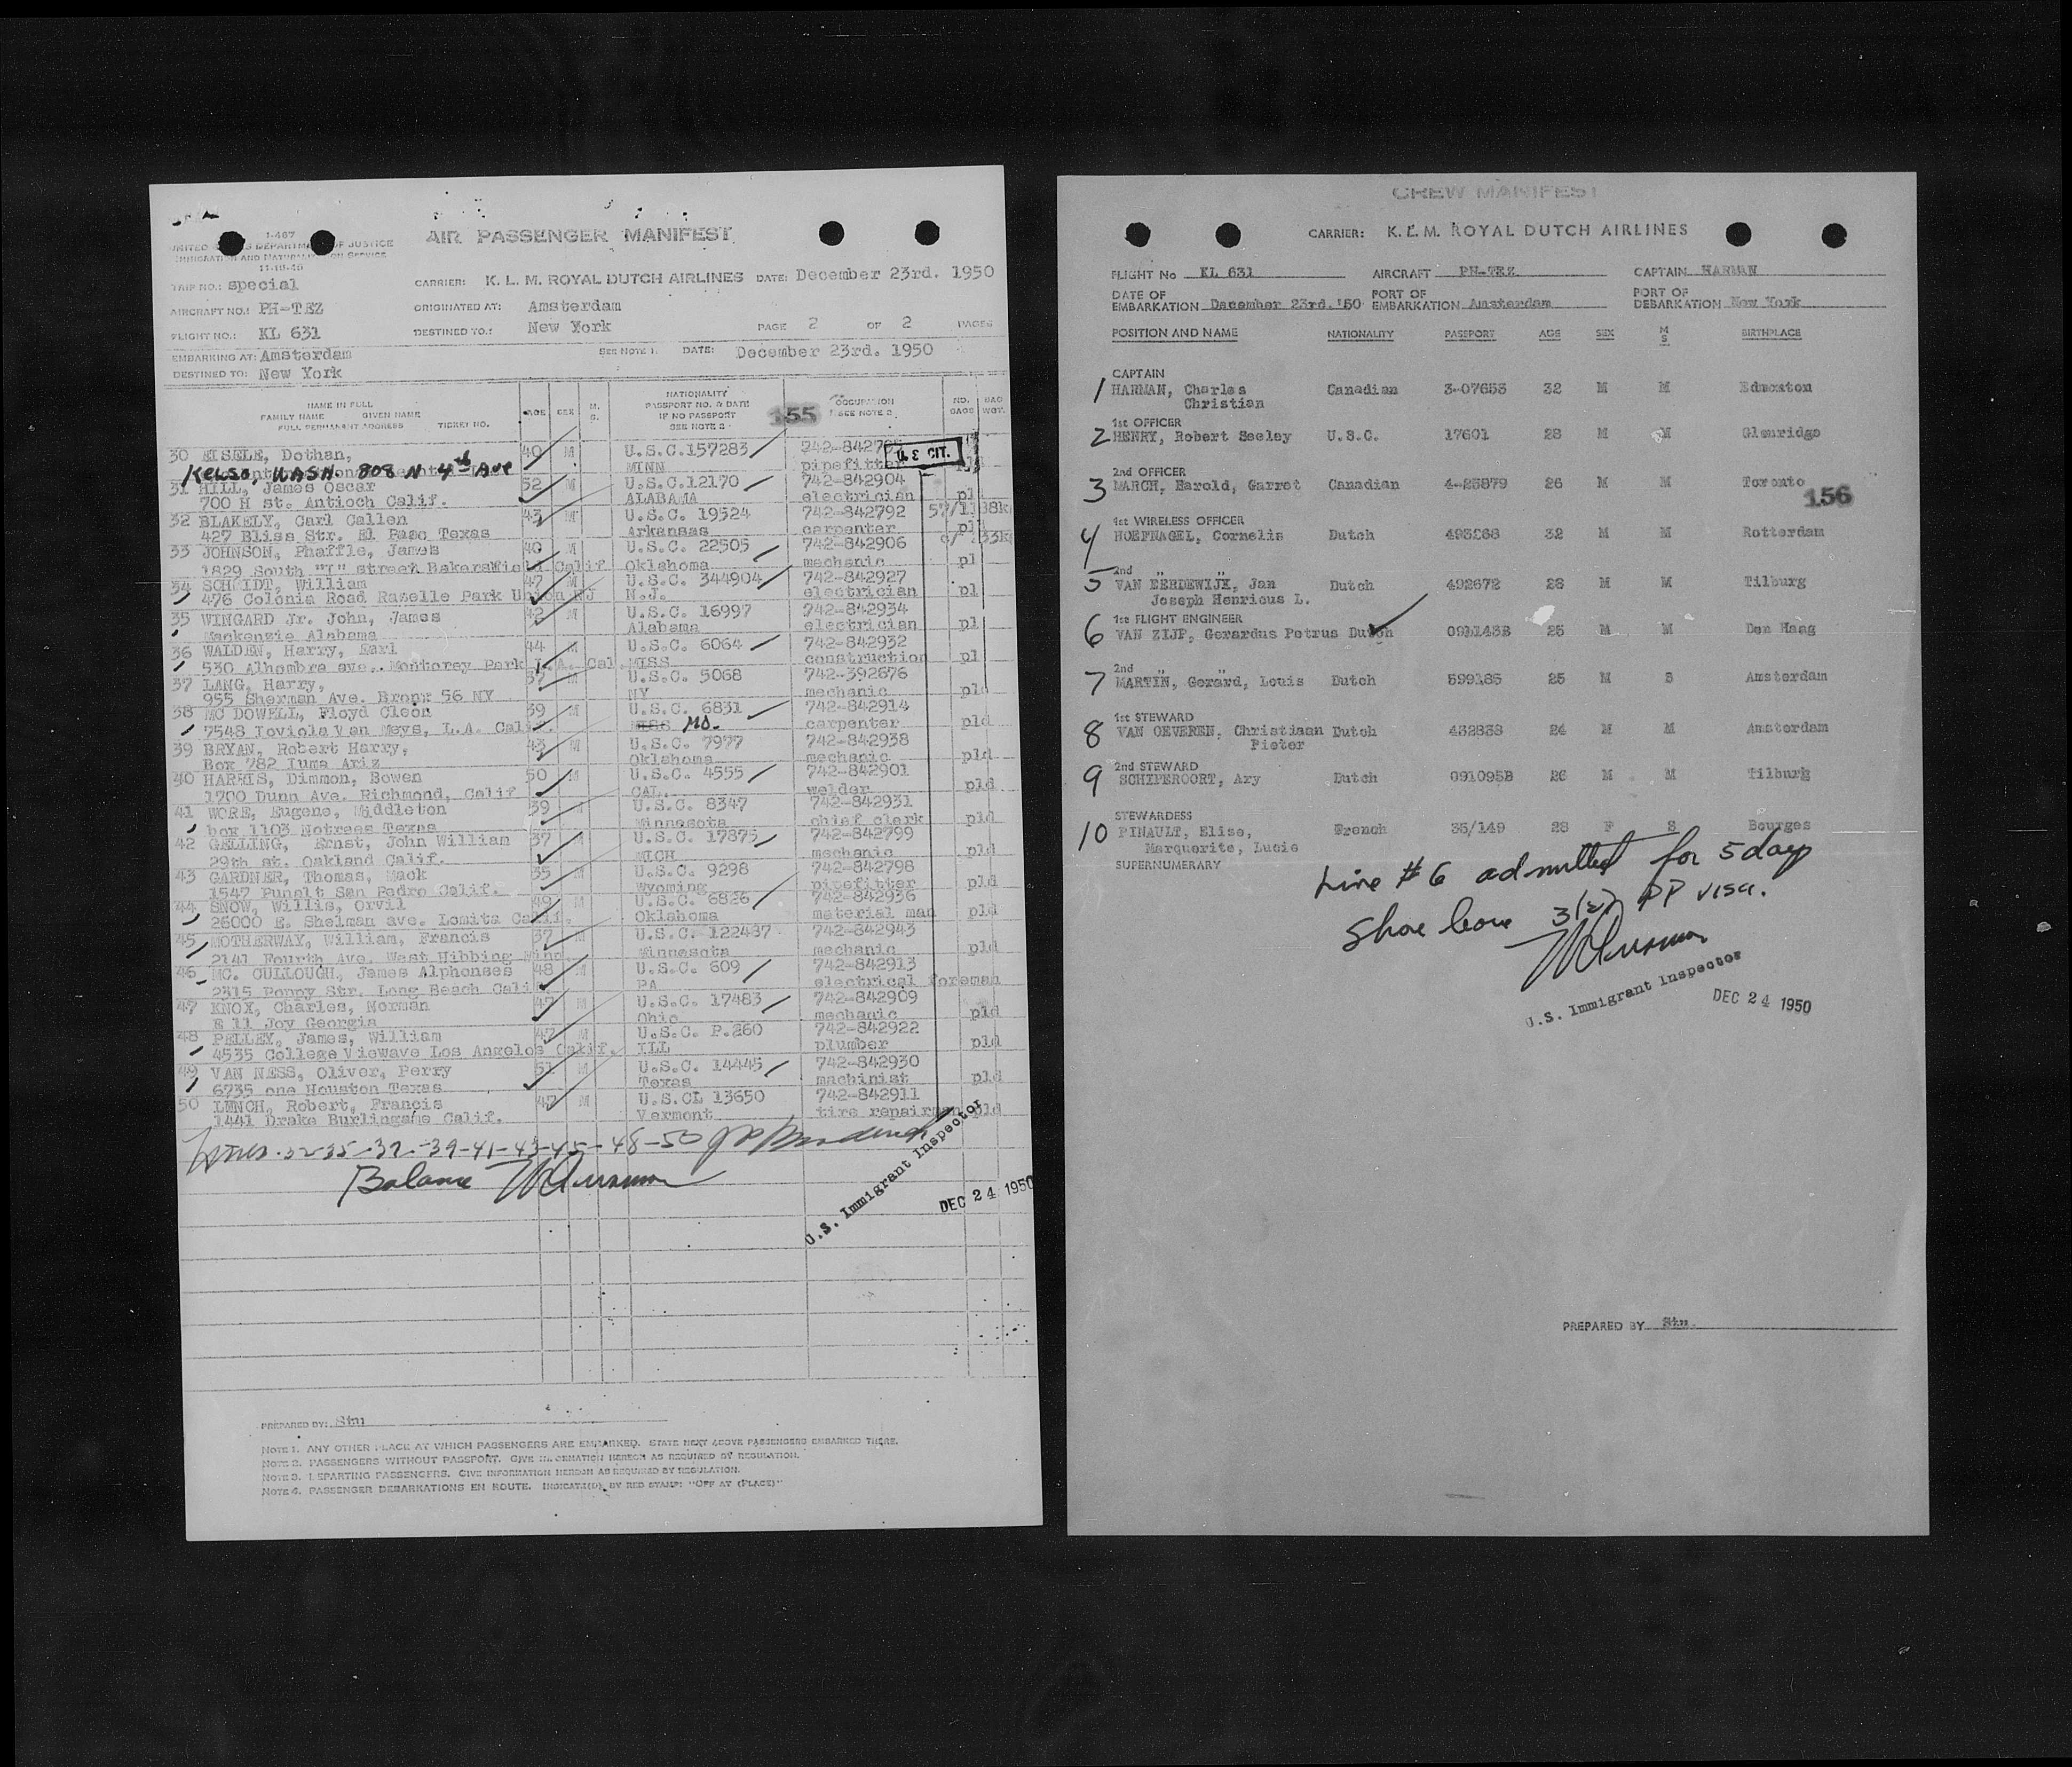 I-467
UNITED STATES DEPARTMENT OF JUSTICE
IMMIGRATION AND NATURALIZATION SERVICE
11-18-46
AIR PASSENGER MANIFEST
TRIP NO.: special
CARRIER: K. L. M. ROYAL DUTCH AIRLINES DATE: December 23rd. 1950
AIRCRAFT NO.: PH-TEZ ORIGINATED AT: Amsterdam
FLIGHT NO.: KL 631 DESTINED TO.: New York PAGE 2 OF 2 PAGES
EMBARKING AT: Amsterdam SEE NOTE 1. DATE: December 23rd. 1950
DESTINED TO: New York
NAME IN FULL
FAMILY NAME GIVEN NAME
FULL PERMANENT ADDRESS TICKET NO.
AGE SEX M. S.
NATIONALITY
PASSPORT NO. & DATE
IF NO PASSPORT
SEE NOTE 2
155
OCCUPATION
SEE NOTE 2
NO. BAGS BAG WGT.
30 EISELE, Dothan, 40 M U.S.C.157283
Kelso, WASH. 808 N 4th Ave MINN pipefitter U.S CIT.
31 HILL, James Oscar 52 M U.S.C.12170 742-842904
700 H st. Antioch Calif. ALABAMA electrician pld
32 BLAKELY, Carl Callen 43 M U.S.C. 19524 742-842792
427 Bliss Str. El Paso Texas Arkansas carpenter pld
33 JOHNSON, Phaffle, James 40 M U.S.C. 22505 742-842906
1829 South "I" street Bakersfield Calif Oklahoma mechanic pl
34 SCHMIDT, William 47 M U.S.C. 344904 742-842927
476 Colonia Road Roselle Park Union NJ N.J. electrician pl
35 WINGARD Jr. John, James 42 M U.S.C. 16997 742-842934
Mackenzie Alabama Alabama electrician pl
36 WALDEN, Harry, Earl 44 M U.S.C. 6064 742-842932
530 Alhambra ave. Monterey Park L.A. Cal. MISS construction pl
37 LANG, Harry, 37 M U.S.C. 5068 742-392876
955 Sherman Ave. Bronx 56 NY NY mechanic pld
38 MC DOWELL, Floyd Cleon 39 M U.S.C. 6831 742-842914
7548 Joviola Van Neys, L.A. Calif. MISS MO. carpenter pld
39 BRYAN, Robert Harry, 43 M U.S.C. 7977 742-842938
Box 782 Iuma Ariz Oklahoma mechanic pld
40 HARRIS, Dimmon, Bowen 50 M U.S.C. 4555 742-842901
1700 Dunn Ave. Richmond, Calif CAL. welder pld
41 WORE, Eugene, Middleton 39 M U.S.C. 8347 742-842931
box 1103 Notrees Texas Minnesota chief clerk pld
42 GELLING, Ernst, John William 37 M U.S.C. 17875 742-842799
29th st. Oakland Calif. MICH mechanic pld
43 GARDNER, Thomas, Mack 35 M U.S.C. 9298 742-842798
1547 San Pedro Calif. Wyoming pipefitter pld
44 SNOW, Willis, Orvil 49 M U.S.C. 6826 742-842936
26000 E. Shelman ave. Lomita Calif. Oklahoma material man pld
45 MOTHERWAY, William, Francis 37 M U.S.C. 122437 742-842943
2141 Fourth Ave. West Hibbing Minn. Minnesota mechanic pld
46 MC. CULLOUGH, James Alphonses 48 M U.S.C. 609 742-842913
2315 Poppy Str. Long Beach Calif PA electrical foreman
47 KNOX, Charles, Norman 47 M U.S.C. 17483 742-842909
E 11 Joy Georgia Ohio mechanic pld
48 PELLEY, James, William 47 M U.S.C. P.260 742-842922
4535 College Viewave Los Angelos Calif. ILL plumber pld
49 VAN NESS, Oliver, Perry 51 M U.S.C. 14445 742-842930
6735 one Houston Texas Texas machinist pld
50 LENCH, Robert, Francis 47 M U.S.CL 13650 742-842911
1441 Drake Burlingame Calif. Vermont tire repairman pld
Lines 32-35-37-39-41-43-45-48-50
Balance
U.S. Immigrant Inspector
DEC 24 1950
PREPARED BY: Stu
NOTE 1. ANY OTHER PLACE AT WHICH PASSENGERS ARE EMBARKED. STATE NEXT ABOVE PASSENGERS EMBARKED THERE.
NOTE 2. PASSENGERS WITHOUT PASSPORT. GIVE INFORMATION HEREON AS REQUIRED BY REGULATION.
NOTE 3. DEPARTING PASSENGERS. GIVE INFORMATION HEREON AS REQUIRED BY REGULATION.
NOTE 4. PASSENGER DEBARKATIONS EN ROUTE. INDICATE(D) BY RED STAMP: "OFF AT (PLACE)"
CREW MANIFEST
CARRIER: K.L.M. ROYAL DUTCH AIRLINES
FLIGHT No KL 631 AIRCRAFT PH-TEZ CAPTAIN HARMAN
DATE OF EMBARKATION December 23rd.'50 PORT OF EMBARKATION Amsterdam PORT OF DEBARKATION New York
POSITION AND NAME NATIONALITY PASSPORT AGE SEX M S BIRTHPLACE
CAPTAIN
1 HARMAN, Charles Canadian 3-07653 32 M M Edmonton
Christian
1st OFFICER
2 HENRY, Robert Seeley U.S.C. 17601 28 M M Glenridge
2nd OFFICER
3 MARCH, Harold, Garrot Canadian 4-25879 26 M M Toronto
156
1st WIRELESS OFFICER
4 HOEFNAGEL, Cornelis Dutch 493268 32 M M Rotterdam
2nd " "
5 VAN EERDEWIJK, Jan Dutch 492672 28 M M Tilburg
Joseph Henricus L.
1st FLIGHT ENGINEER
6 VAN ZIJP, Gerardus Petrus Dutch 091143B 25 M M Den Haag
2nd " "
7 MARTIN, Gerard, Louis Dutch 599185 25 M S Amsterdam
1st STEWARD
8 VAN OEVEREN, Christiaan Dutch 432838 24 M M Amsterdam
Pieter
2nd STEWARD
9 SCHIPEROORT, Ary Dutch 091095B 26 M M Tilburg
STEWARDESS
10 PINAULT, Elise, French 35/149 28 F S Bourges
Marquerite, Lucie
SUPERNUMERARY
Line # 6 admitted for 5 days
Shore leave 3(2) PP visa.
U.S. Immigrant Inspector
DEC 24 1950
PREPARED BY Stu.